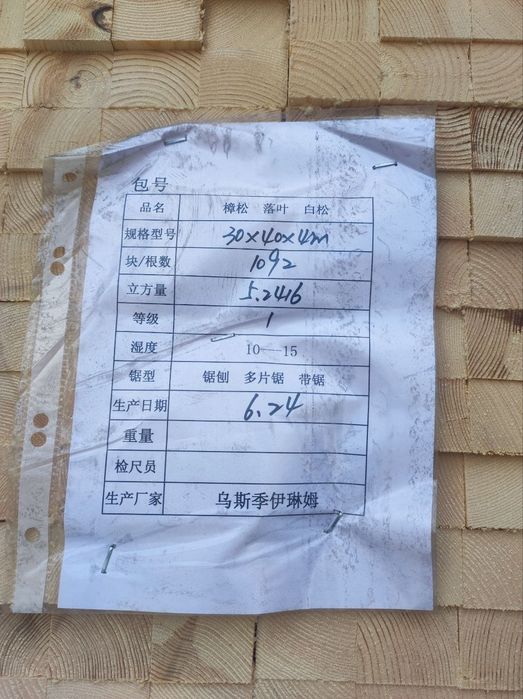 包号
品名 樟松 落叶 白松
规格型号 30×40×4m
块/根数 1092
立方量 5.2416
等级 1
湿度 10---15
锯型 锯刨 多片锯 带锯
生产日期 6.24
重量
检尺员
生产厂家 乌斯季伊琳姆